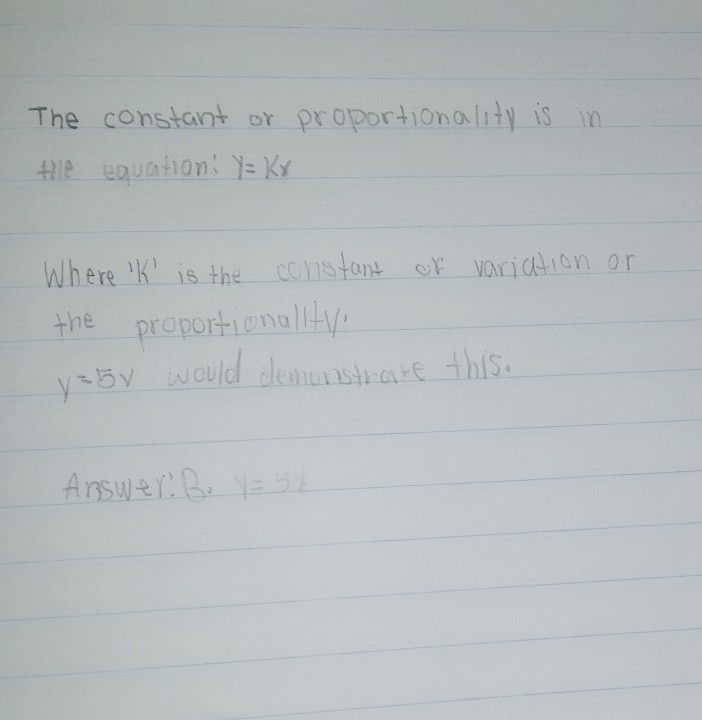 The constant or proportionality is in
the equation: y=Kx
Where 'K' is the constant of variation or
the proportionality.
y=5x would demonstrate this.
Answer: B. y=5x